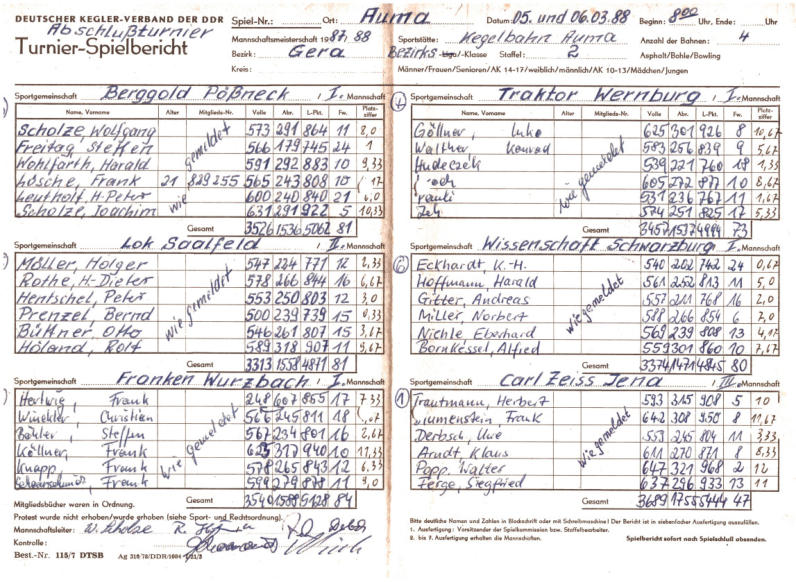 DEUTSCHER KEGLER-VERBAND DER DDR
Abschlußturnier
Turnier-Spielbericht
Spiel-Nr.: Ort: Auma Datum: 05. und 06.03.88 Beginn: 8⁰⁰ Uhr, Ende: Uhr
Mannschaftsmeisterschaft 1987/88 Sportstätte: Kegelbahn Auma Anzahl der Bahnen: 4
Bezirk: Gera Bezirks-Liga/-Klasse Staffel: 2 Asphalt/Bohle/Bowling
Kreis: Männer/Frauen/Senioren/AK 14-17/weiblich/männlich/AK 10-13/Mädchen/Jungen
Sportgemeinschaft Berggold Pößneck I. Mannschaft
Name, Vorname Alter Mitglieds-Nr. Volle Abr. L.-Pkt. Fw. Platz-ziffer
Scholze, Wolfgang 573 291 864 11 8,0
Freitag Steffen 566 179 745 24 1
Wohlfarth, Harald 591 292 883 10 9,33
Lösche, Frank 21 829 255 565 243 808 10
Leutholf, H-Peter 600 240 840 21
Scholze, Joachim 631 291 922 5 10,33
wie gemeldet
Gesamt 3526 1536 5062 81
Sportgemeinschaft Lok Saalfeld II. Mannschaft
Möller, Holger 547 224 771 12 2,33
Rothe, H-Dieter 578 266 844 16 6,67
Hentschel, Peter 553 250 803 12 3,0
Prenzel, Bernd 500 239 739 15 0,33
Büttner Otto 546 261 807 15 3,67
Höland, Rolf 589 318 907 11 9,67
wie gemeldet
Gesamt 3313 1558 4871 81
Sportgemeinschaft Franken Wurzbach I. Mannschaft
Hertwig, Frank 248 607 855 17 7,33
Winckler, Christian 566 245 811 18
Böhler, Steffen 567 234 801 16 2,67
Köllner, Frank 623 317 940 10 11,33
Knapp, Frank 578 265 843 12 6,33
Frank 599 279 878 11 9,0
wie gemeldet
Mitgliedsbücher waren in Ordnung. Gesamt 3540 1588 5128 84
Protest wurde nicht erhoben/wurde erhoben (siehe Sport- und Rechtsordnung).
Mannschaftsleiter: W. Scholze
Kontrolle:
Best.-Nr. 115/7 DTSB
④ Sportgemeinschaft Traktor Wernburg I. Mannschaft
Name, Vorname Alter Mitglieds-Nr. Volle Abr. L.-Pkt. Fw. Platz-ziffer
Göllner, 625 301 926 8 10,67
Walther Konrad 583 256 839 9 5,67
Hudeczek 539 221 760 18 1,33
605 272 877 10 8,67
531 236 767 11 1,67
Zeh 574 251 825 17 5,33
wie gemeldet
Gesamt 3457 1537 4994 73
⑥ Sportgemeinschaft Wissenschaft Schwarzburg I. Mannschaft
Eckhardt, K.-H. 540 202 742 24 0,67
Hoffmann, Harald 561 252 813 11 5,0
Gitter, Andreas 557 211 768 16 2,0
Miller, Norbert 588 266 854 6 7,0
Nichle Eberhard 569 239 808 13 4,17
Bornkessel, Alfred 559 301 860 10 7,67
wie gemeldet
Gesamt 3374 1471 4845 80
① Sportgemeinschaft Carl Zeiss Jena III. Mannschaft
Trautmann, Herbert 593 315 908 5 10
Frank 642 308 950 8 11,67
Derbsch, Uwe 559 245 804 11 3,33
Arndt, Klaus 611 270 871 8 8,33
Popp, Walter 647 321 968 2 12
Ferge, Siegfried 637 296 933 13 11
wie gemeldet
Gesamt 3689 1755 5444 47
Bitte deutliche Namen und Zahlen in Blockschrift oder mit Schreibmaschine! Der Bericht ist in siebenfacher Ausfertigung auszufüllen.
1. Ausfertigung: Vorsitzender der Spielkommission bzw. Staffelbearbeiter.
2. bis 7. Ausfertigung erhalten die Mannschaften. Spielbericht sofort nach Spielschluß absenden.